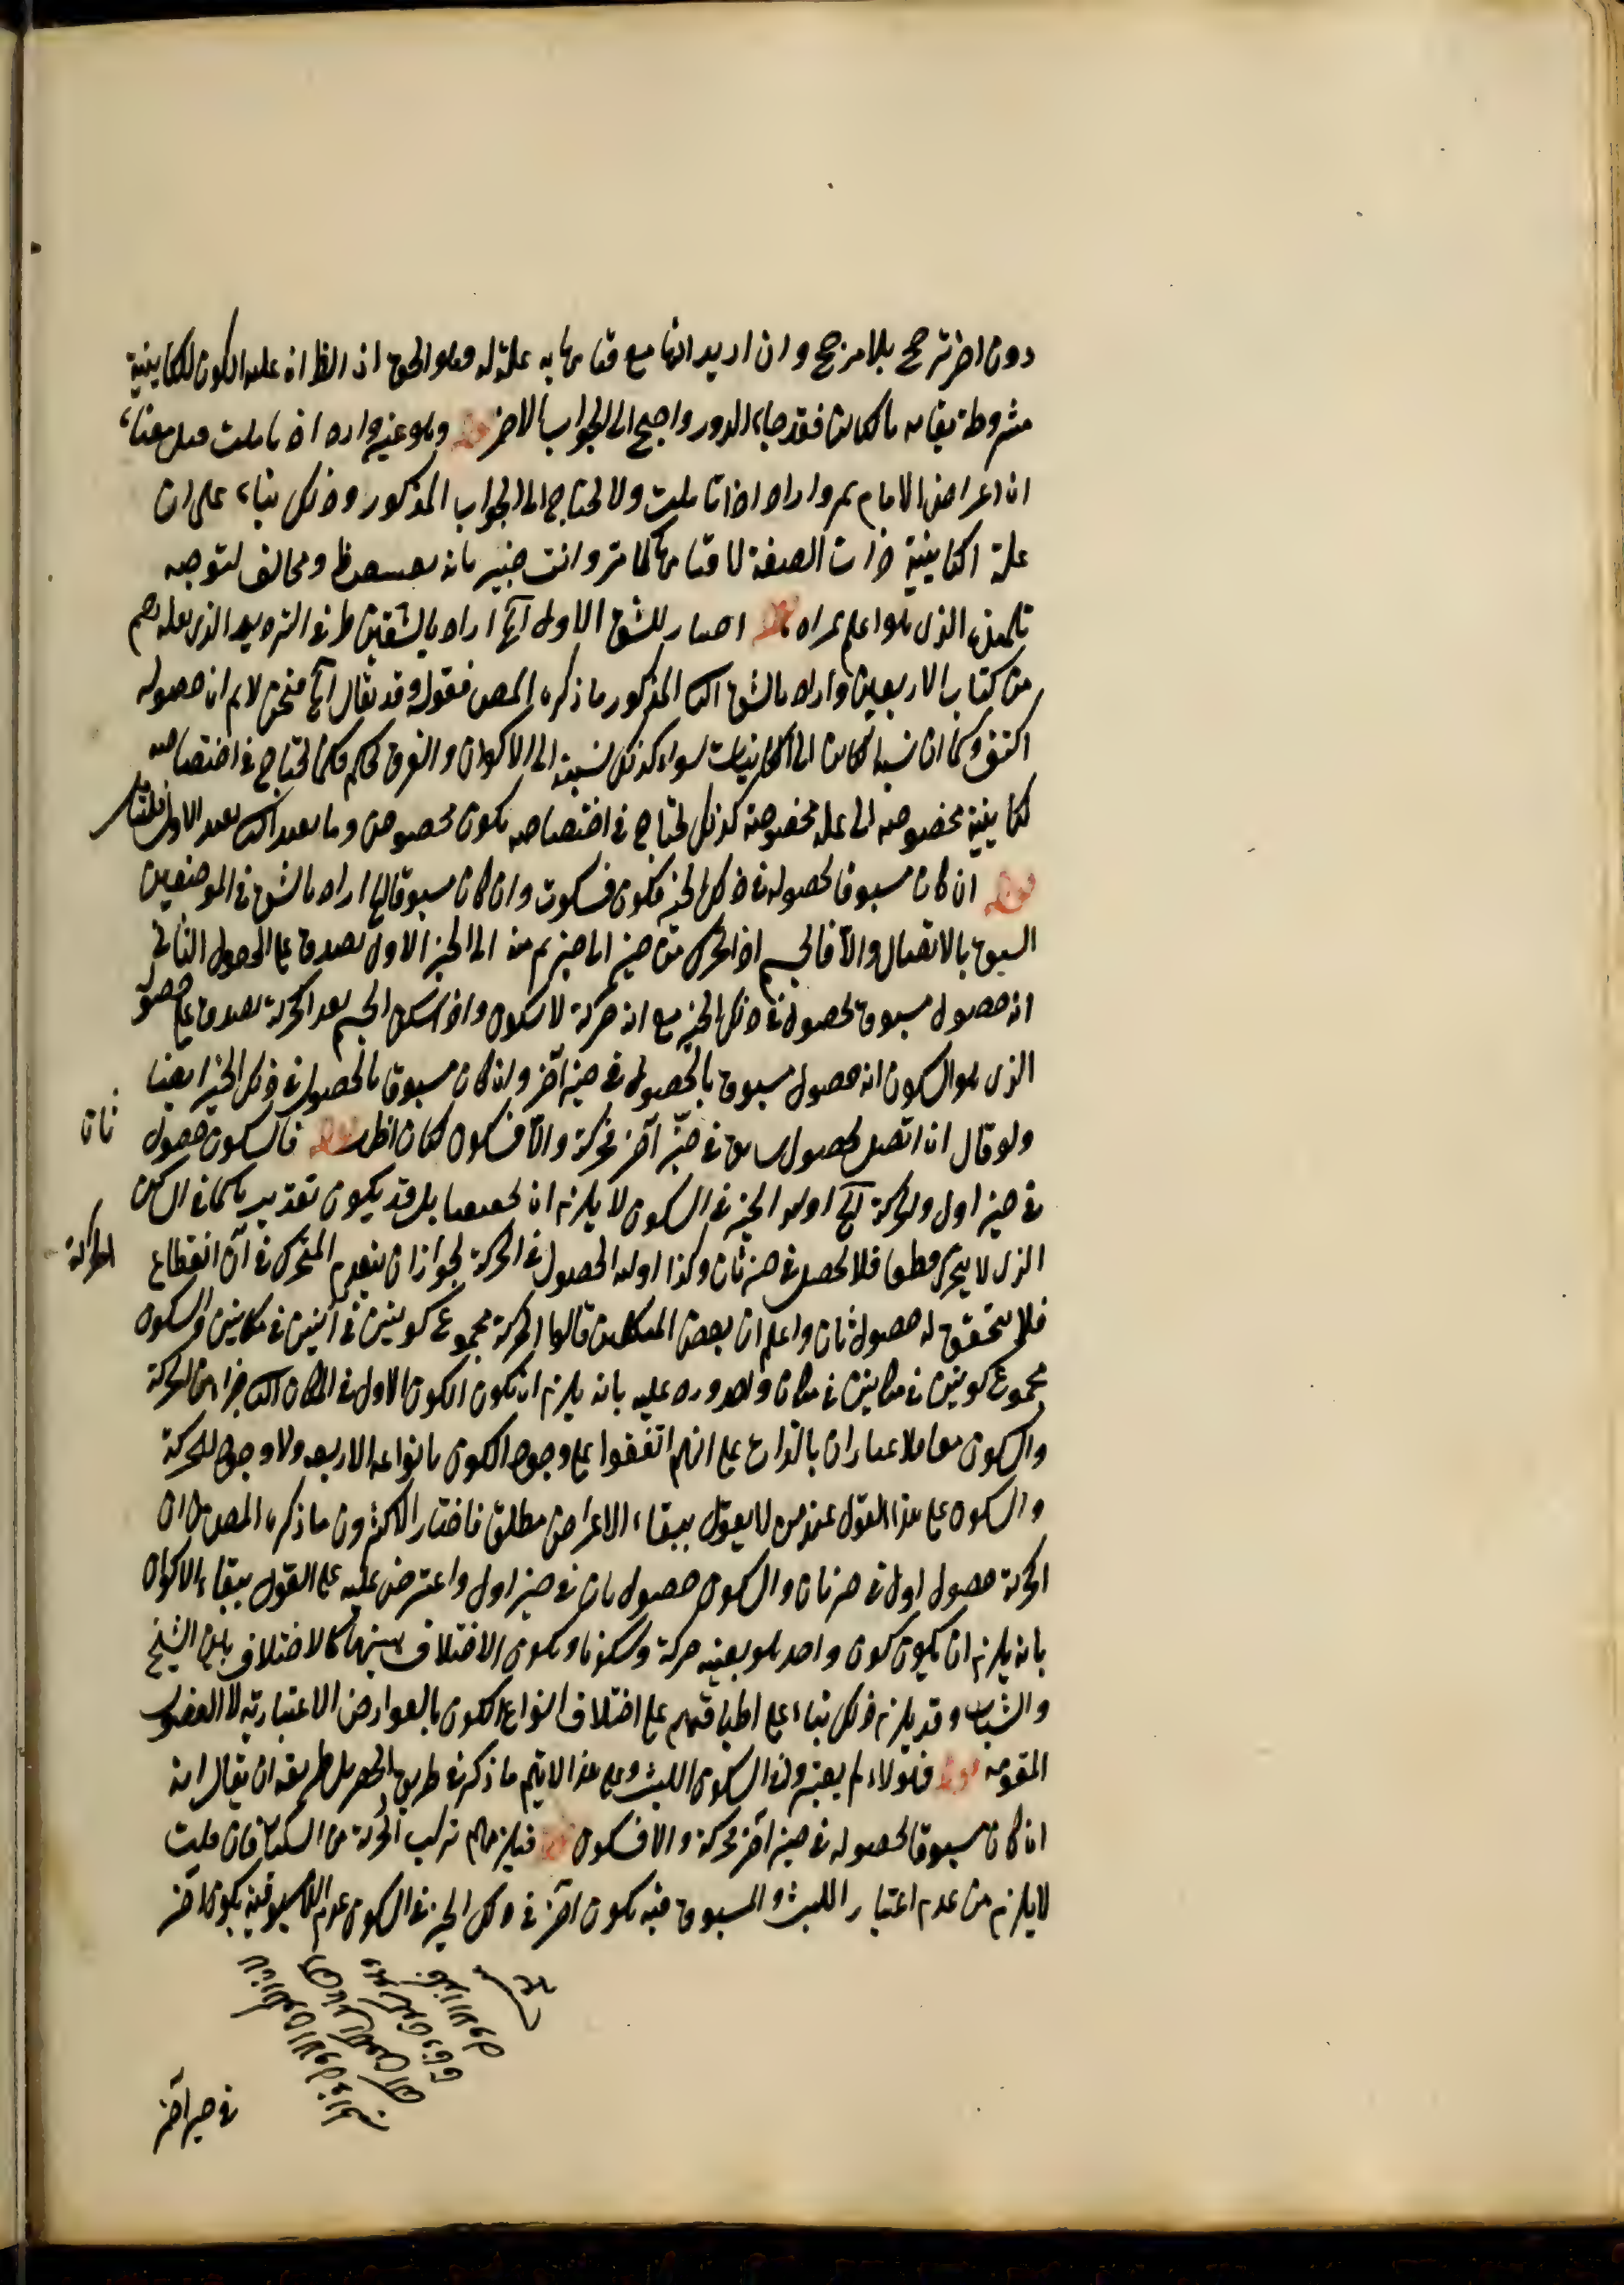 دون اخر ترجيح بلا مرجح وان اريد انها مع قيامها به علة له وهو الحق اذ الظ ان علية الكون للكاينية
مشروطة بقيامه بالكاين فقد جاء الدور واحتيج الى الجواب الاخر قوله وهو غير وارد اذ تاملت قيل معناه
ان اعراض الامام غير وارد اذا تاملت ولا يحتاج الى الجواب المذكور وذلك بناء على ان
علة الكاينية ذات الصفة لا قيامها كما مر وانت خبير بانه تعسف ومخالف لتوجيه
تلميذه الذي هو اعلم بمراده قوله اختيار للشق الاول آه اراد بالشقين طرفي الترديد الذي نقله بعضهم
من كتاب الاربعين واراد بالشق الثاني المذكور ما ذكره المصن فقوله وقد يقال آه فنحن لا نم ان حصوله
وكما ان نسبة الكاين الى الكاينيات سواء كذلك نسبته الى الاكوان والفرق تحكم فكما يحتاج في اختصاصه
لكاينية مخصوصة الى علة مخصوصة كذلك يحتاج في اختصاصه بكون مخصوص وما بعد الثاني بعد الاول
قوله ان كان مسبوقا بحصوله في ذلك الحيز فكون فسكون وان كان مسبوقا آه اراد بالشق في الموضعين
السبق بالاتصال والا فالجسم اذا تحرك من حيز الى حيز ثم منه الى الحيز الاول يصدق على الحصول الثاني
انه حصول مسبوق بحصوله في ذلك الحيز مع انه حركة لا سكون واذا سكن الجسم بعد الحركة يصدق على حصوله
الذي هو السكون انه حصول مسبوق بالحصول في حيز آخر وان كان مسبوقا بالحصول في ذلك الحيز ايضا
ولو قال ان اتصل بحصول سابق في حيز آخر فحركة والا فسكون لكان اظهر قوله فالسكون حصول ثان
في حيز اول والحركة آه اولية الحيز في السكون لا يلزم ان تكون تحقيقا بل قد يكون تقديرا كما في الساكن
الذي لا يتحرك قطعا فلا يحصل في حيز ثان وكذا اولية الحصول في الحركة لجواز ان ينعدم المتحرك في آن انقطاع الحركة
فلا يتحقق له حصول ثان واعلم ان بعض المتكلمين قالوا الحركة مجموع كونين في آنين في مكانين والسكون
مجموع كونين في آنين في مكان واحد ورد عليه بانه يلزم ان يكون الكون الاول في المكان الثاني جزءا من الحركة
والسكون معا فلا يمتازان بالذات على انهم اتفقوا على وجود الكون بانواعه الاربعة ولا وجود للحركة
والسكون على هذا القول عند من لا يقول ببقاء الاعراض مطلقا فاختار الاكثرون ما ذكره المصن من ان
الحركة حصول اول في حيز ثان والسكون حصول ثان في حيز اول واعترض عليه على القول ببقاء الاكوان
بانه يلزم ان يكون كون واحد هو بعينه حركة وسكونا ويكون الاختلاف بينهما كالاختلاف بين الشيخ
والشباب وقد يلزم ذلك بناء على اطباقهم على اختلاف انواع الكون بالعوارض الاعتبارية لا الفصول
المقومة قوله فهؤلاء لم يعتبروا في السكون اللبث وعلى هذا لا يتم ما ذكره في طريق الحصر بل طريقه ان يقال انه
ان كان مسبوقا بحصوله في حيز آخر فحركة والا فسكون قوله فيلزمهم تركب الحركة من السكنات فان قلت
لا يلزم من عدم اعتبار اللبث والمسبوقية بكون آخر في ذلك الحيز في السكون عدم المسبوقية بكون آخر
في حيز آخر